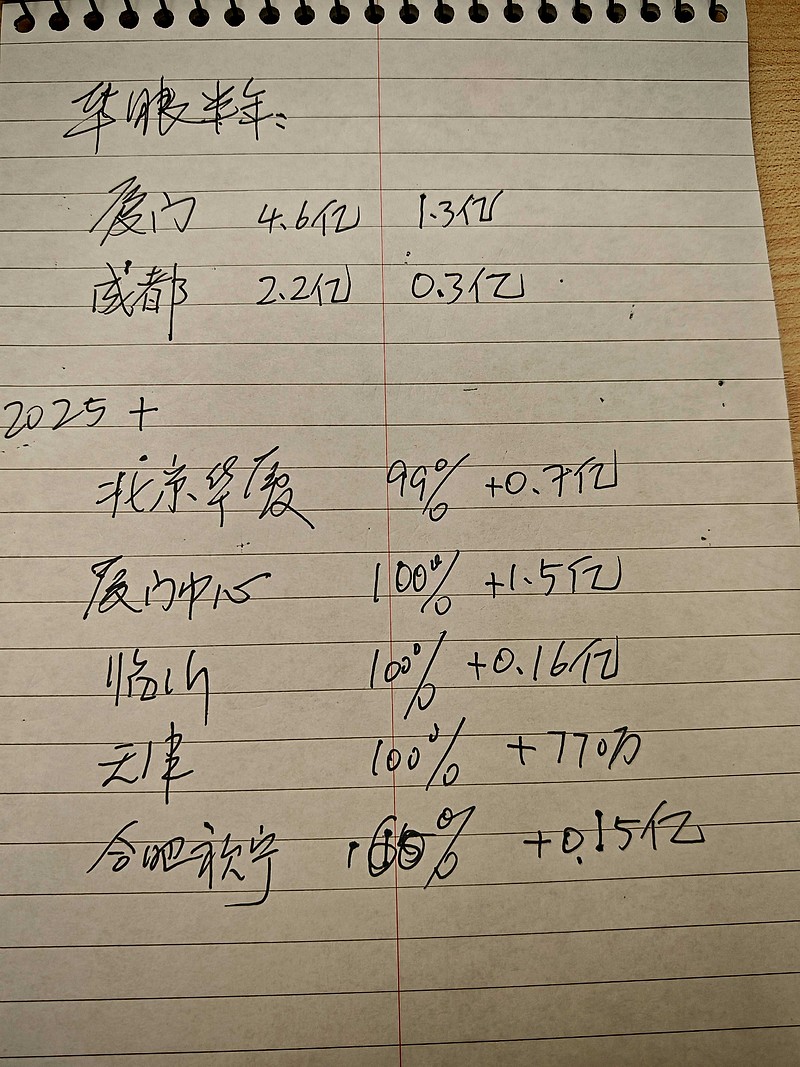 华眼半年:
厦门 4.6亿 1.3亿
成都 2.2亿 0.3亿
2025+
北京华厦 99% +0.7亿
厦门中心 100% +1.5亿
临沂 100% +0.16亿
天津 100% +770万
合肥视宁 100% +0.15亿